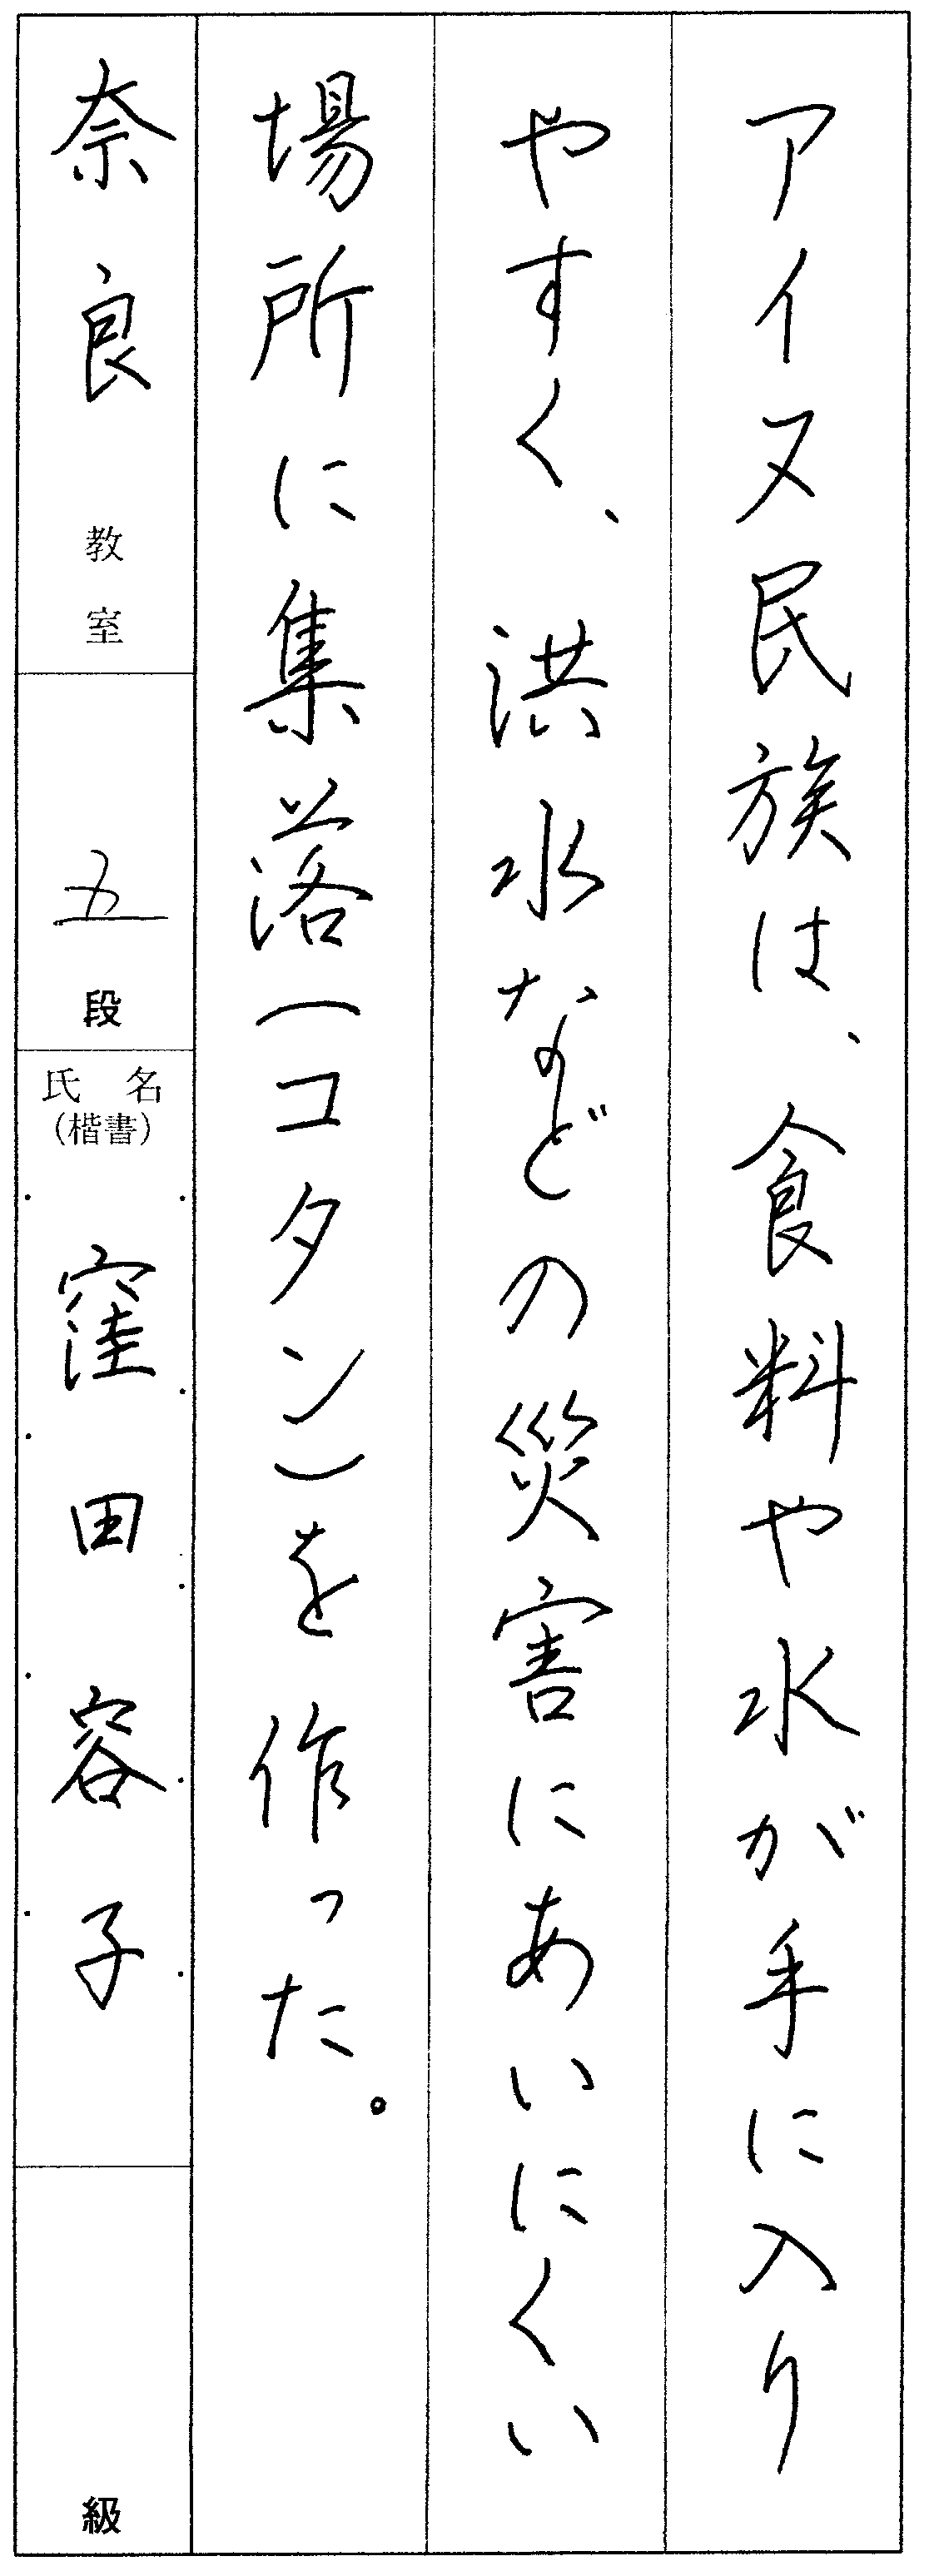 アイヌ民族は、食料や水が手に入り
やすく、洪水などの災害にあいにくい
場所に集落(コタン)を作った。
奈良教室
五段
氏名
(楷書)
窪田容子
級